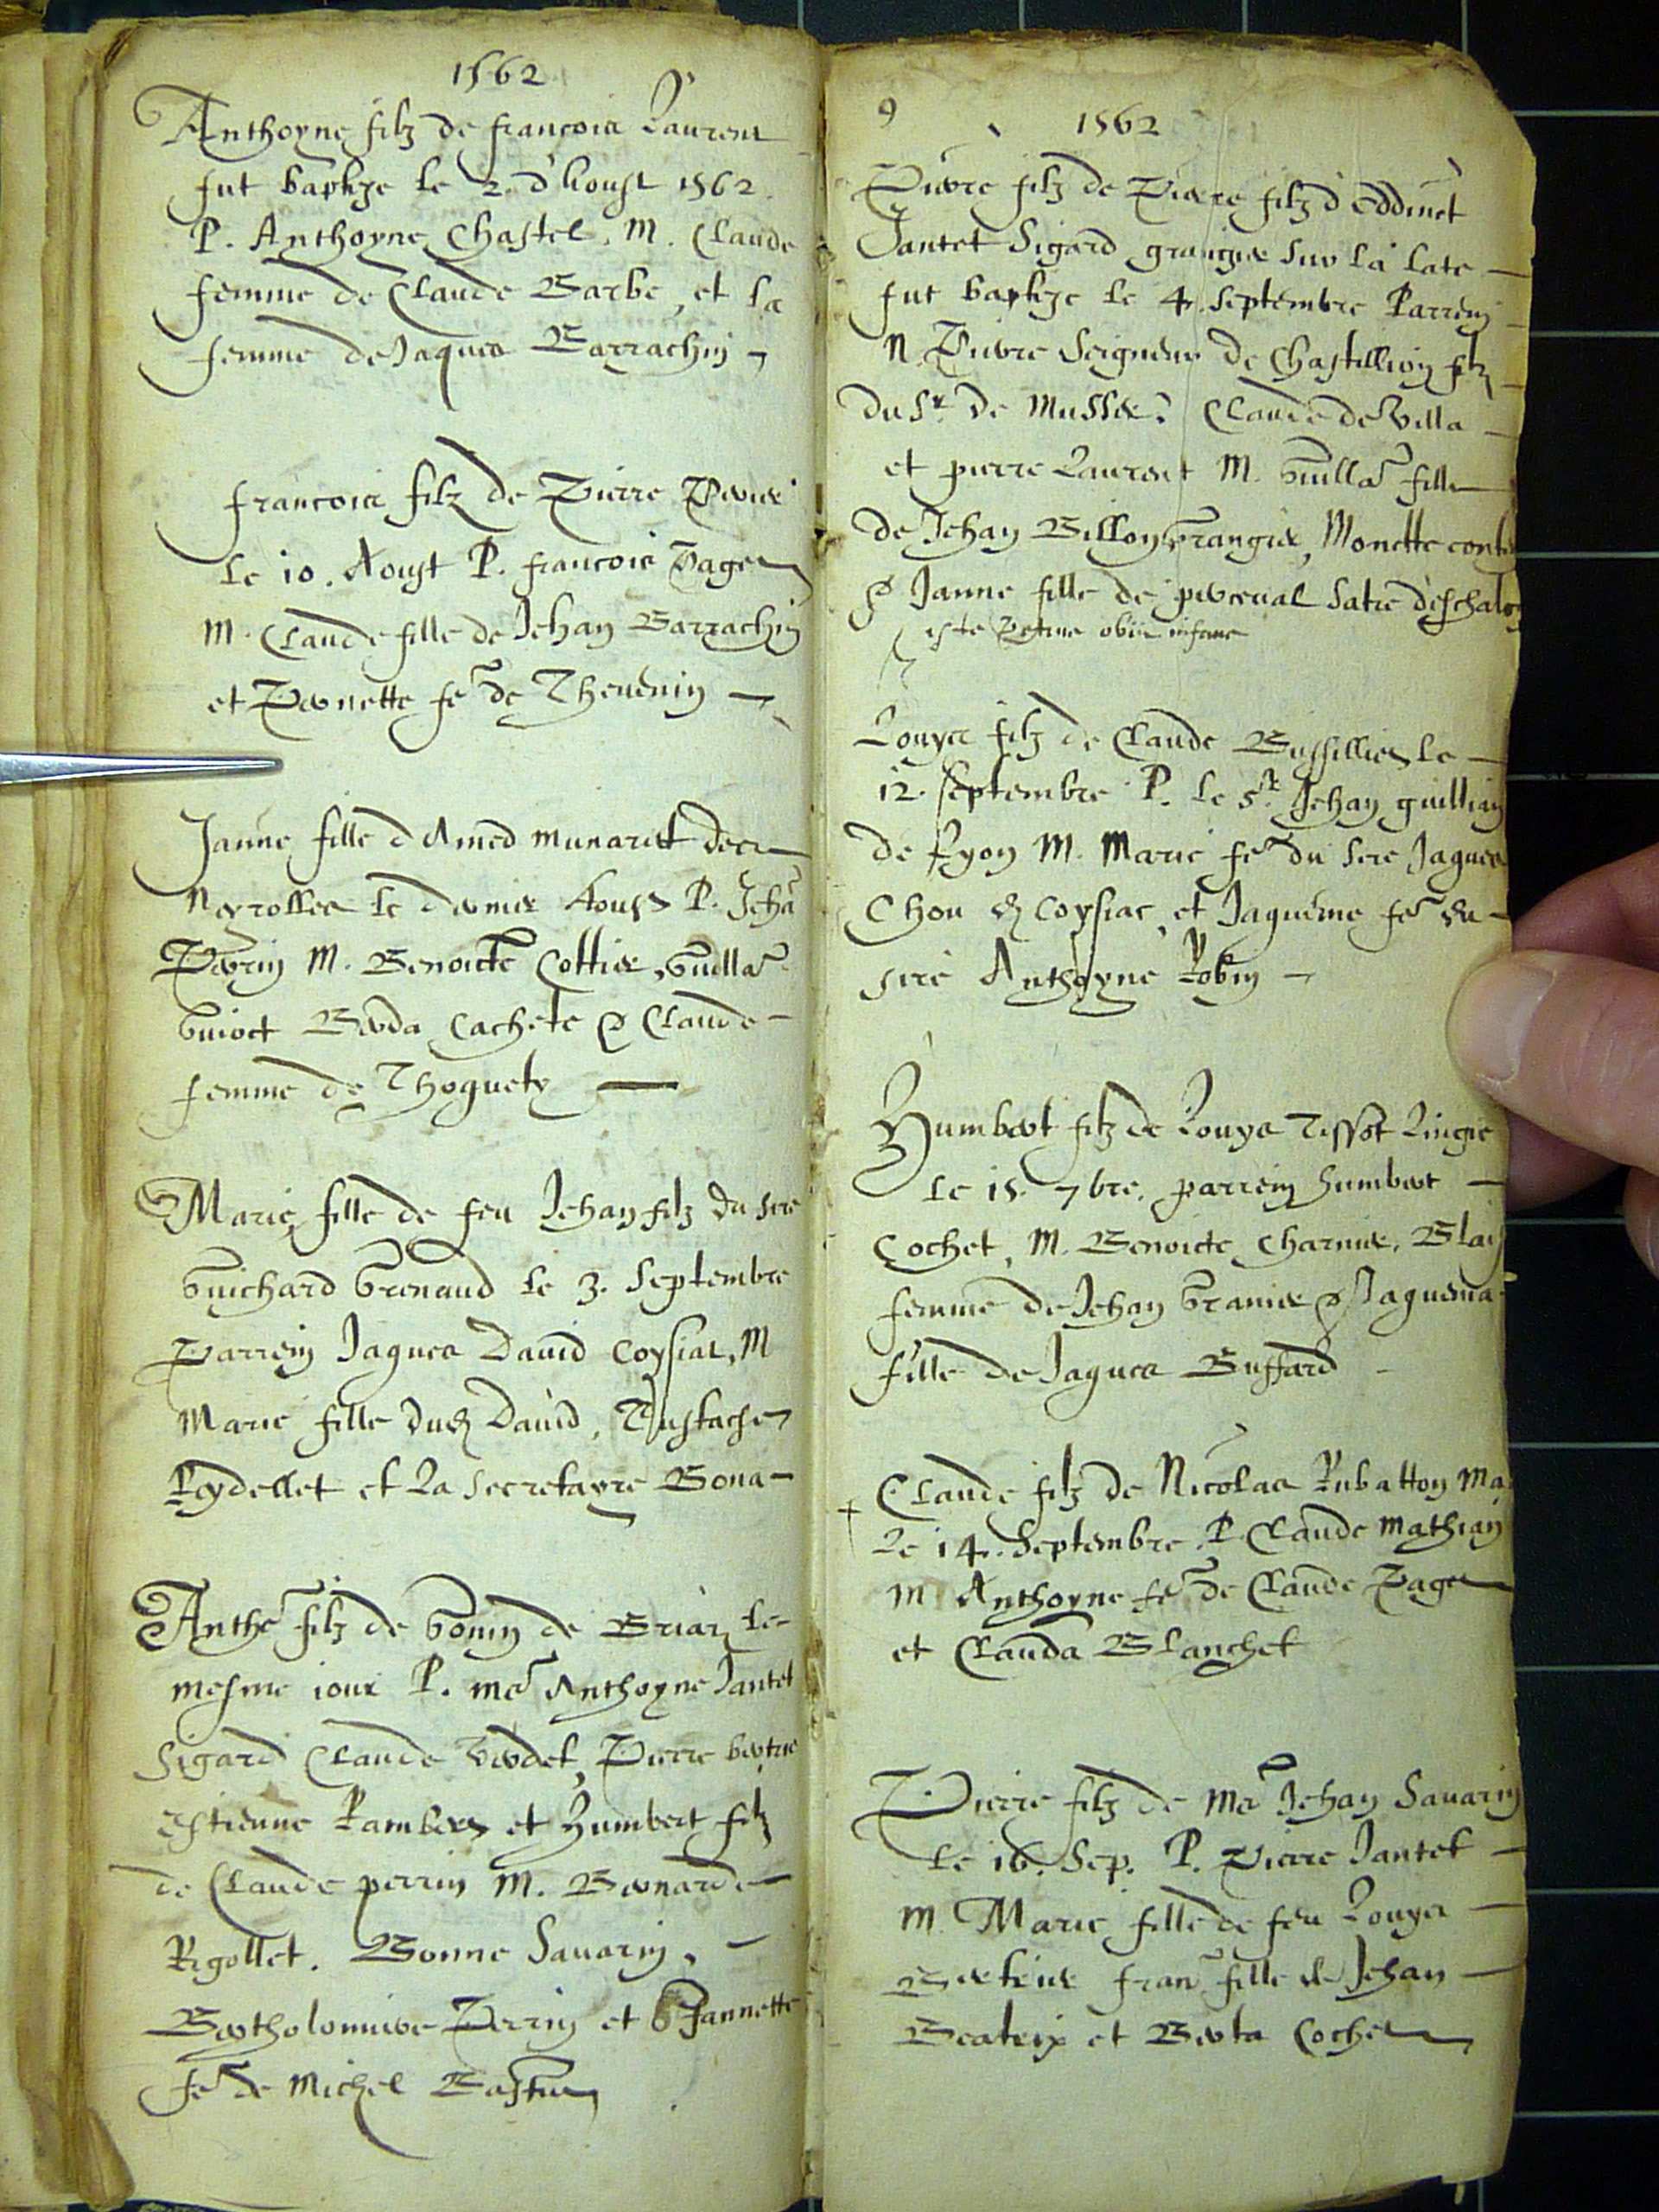 1562
Anthoyne filz de francois Laurent
fut baptize le 2. d'houst 1562.
P. Anthoyne Chastel, M. Claude
femme de Claude Barbe, et la
femme de Jaques Barrachin
francois filz de Pierre
le 10. Aoust P. francois Pages
M. Claude fille de Jehan Barrachin
et Pernette fe de Thevenin
Janne fille d Amed munaret des
Neyrolles le dernier Aoust P. Jeha
Perrin M. Benoicte Cottier, Guilla
Guioct Berda Cachete & Claude
femme de Thoguety
Marie fille de feu Jehan filz du sire
Guichard Grenaud le 3. Septembre
Parrein Jaques David Coysiat, M
Marie fille dud David, Eustache
Reydellet et La secretayre Bona
Anthe filz de Gonin de Brian le
mesme jour P. me Anthoyne Jantet
Sigard Claude Verdet, Pierre
estienne Rambert et Humbert filz
de Claude perrin M. Bernarde
Rigollet. Bonne Savarin,
Bartholomive Perrin et Jannette
fe de Michel
9 1562
Pierre filz de Pierre filz d'Edduict
Jantet Sigard grangier sur la late
fut baptize le 4. septembre Parrein
N. Pierre Seigneur de Chastillion filz
du Sr. de Mussie. Claude de Villa
et pierre Laurent M. Guilla fille
de Jehan Billon Grangier, Monette
& Janne fille de perceval
iste Petrus obiit infans
Louys filz de Claude Bussillies le
12. septembre P. le Sr. Jehan guillian
de Lyon M. Marie fe du sire Jaques
Chou d Coysiac, et Jaqueme fe du
sire Anthoyne Robin
Humbert filz de Louys Tissot Lingie
le 15. 7bre. parrein humbert
Cochet, M. Benoicte Charnier, Blais
femme de Jehan Granier & Jaquema
fille de Jaques Buffard
Claude filz de Nicolas Rubatton Ma
le 14. Septembre P. Claude Mathian
M Anthoyne fe de Claude Pages
et Clauda Blanchet
Pierre filz de Me Jehan Savarin
le 16. Sep. P. Pierre Jantet
M. Marie fille de feu Louys
fran fille de Jehan
Beatrix et Berta Cochet